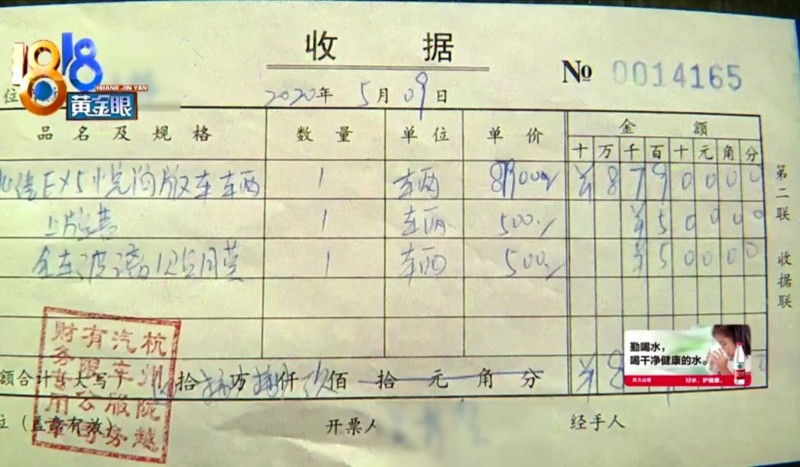 1818
HUANG JIN YAN
黄金眼
收 据
№ 0014165
位
2020年 5 月 09 日
品 名 及 规 格 数 量 单 位 单 价 金 额
十 万 千 百 十 元 角 分
EX5 版车 车辆 1 车辆 ¥ 8 7 9 0 0 0 0
上牌费 1 车辆 500 ¥ 5 0 0 0 0
全车玻璃 1 车辆 500 ¥ 5 0 0 0 0
第二联 收据联
额合计(大写) 拾 万 仟 玖佰 拾 元 角 分 ¥ 8
位(盖章有效) 开票人 经手人
杭州
汽车服务
有限公司
财务专用章
勤喝水,
喝干净健康的水。
好水,护健康。